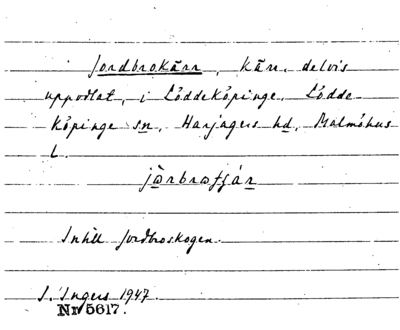 Jordbrokärr, kärr, delvis
uppodlat, i Löddeköpinge, Lödde
köpinge sn, Harjagers hd, Malmöhus
l.
Intill Jordbroskogen.
I. Ingers 1947.
Nr 5617.